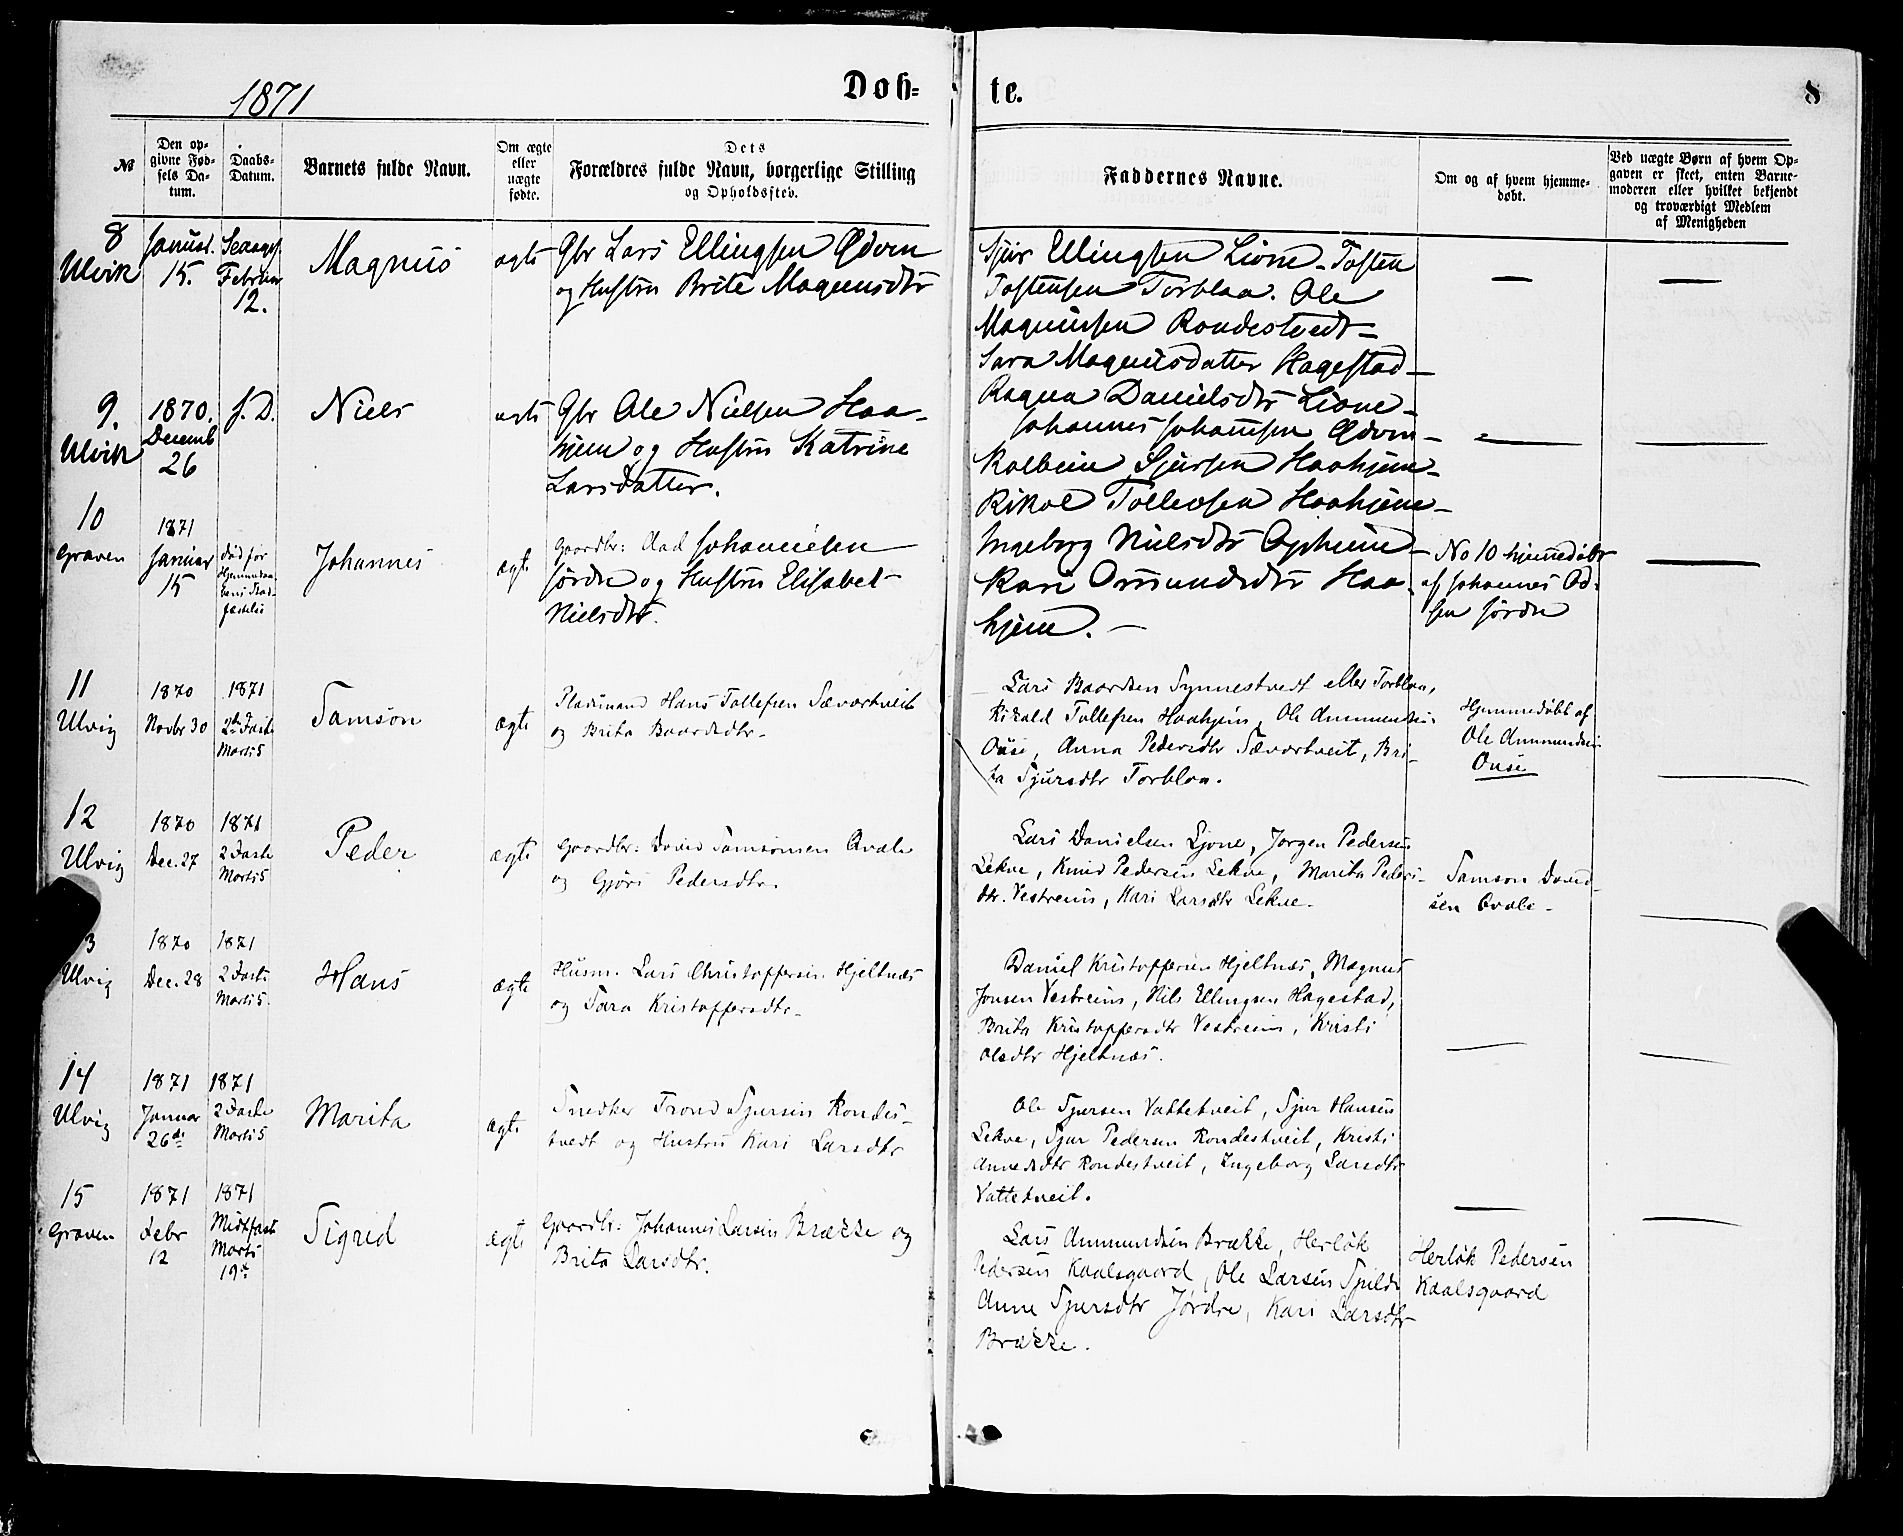 1871
Døb=
te.
8
№
Den op-
givne Fød-
sels Da-
tum.
Daabs-
Datum.
Barnets fulde Navn.
Om ægte
eller
uægte
fødte.
Dets
Forældres fulde Navn, borgerlige Stilling
og Opholdssted.
Faddernes Navne.
Om og af hvem hjemme-
døbt.
Ved uægte Børn af hvem Op-
gaven er skeet, enten Barne-
moderen eller hvilket bekjendt
og troværdigt Medlem
af Menigheden
8
Ulvik
Januar
15.
Februar
12.
Magnus
ægte
Gbr Lars Ellingsen Ødvin
og Hustru Brite Magnusdtr
Sjur Ellingsen Lione - Tosten
Tostensen Torblaa. Ole
Magnussen Rondestvedt -
Sara Magnusdatter Hagestad -
9.
Ulvik
1870.
Decemb
26
s. D.
Niels
ægte
Gbr Ole Nielsen Haa-
hjem og Hustru Katrine
Larsdatter.
Ragna Danielsdtr Lione -
Johannes Johannesen Ødvin -
Kolbein Sjursen Haahjem -
Rikol Tollevsen Haahjem -
Ingeborg Nielsdtr Opheim -
Kari Omundsdtr Haa-
hjem. -
10
Graven
1871
Januar
15
død før
Johannes
ægte
Gaardbr: Aad Johannesen
Jørdre og Hustru Elisabet
Nielsdtr.
No 10 hjemmedøbt
af Johannes Od-
sen Jørdre
11
Ulvig
1870
Novbr 30
1871
2den Faste
Marts 5
Samson
ægte
Pladsmand Hans Tollefsen Sævartveit
og Brita Baardsdtr.
Lars Baardsen Synnestvedt eller Torblaa,
Rikold Tollefsen Haahjem, Ole Ammundsen
Ouse, Anna Pedersdtr Sævartveit, Bri-
ta Sjursdtr Torblaa.
Hjemmedøbt af
Ole Ammundsen
Ouse
12
Ulvig
1870
Dec. 27
1871
2 Faste
Marts 5
Peder
ægte
Gaardbr: David Samsonsen Qvale
og Gjøri Pedersdtr.
Lars Danielsen Ljone, Jørgen Pedersen
Lekve, Knud Pedersen Lekve, Marita Peders-
dtr. Vestreim, Kari Larsdtr Lekve.
Samson David-
sen Qvale -
3
Ulvig
1870
Dec. 28
1871
2 Faste
Marts 5.
Hans
ægte
Husm. Lars Christoffersen Hjeltnæs
og Sara Kristoffersdtr.
Daniel Kristoffersen Hjeltnæs, Magnus
Jonsen Vestreim, Nils Ellingsen Hagestad,
Brita Kristoffersdtr Vestreim, Kristi
Olsdtr Hjeltnæs.
14
Ulvig
1871
Januar
26de
1871
2 Faste
Marts 5
Marita
ægte
Snedker Trond Sjursen Rondes-
tvedt og Hustru Kari Larsdtr
Ole Sjursen Vattetveit, Sjur Hansen
Lekve, Sjur Pedersen Rondestveit, Kristi
Annedsdtr Rondestveit, Ingeborg Larsdtr
Vattetveit.
15
Graven
1871
Febr
12
1871
Midtfaste
Marts
19de
Sigrid
ægte
Gaardbr: Johannes Larsen Brække og
Brita Larsdtr.
Lars Ammundsen Brække, Herløk
Pedersen Kaalsgaard, Ole Larsen Spilde
Anne Sjursdtr Jørdre, Kari Larsdtr
Brække.
Herløk Pedersen
Kaalsgaard